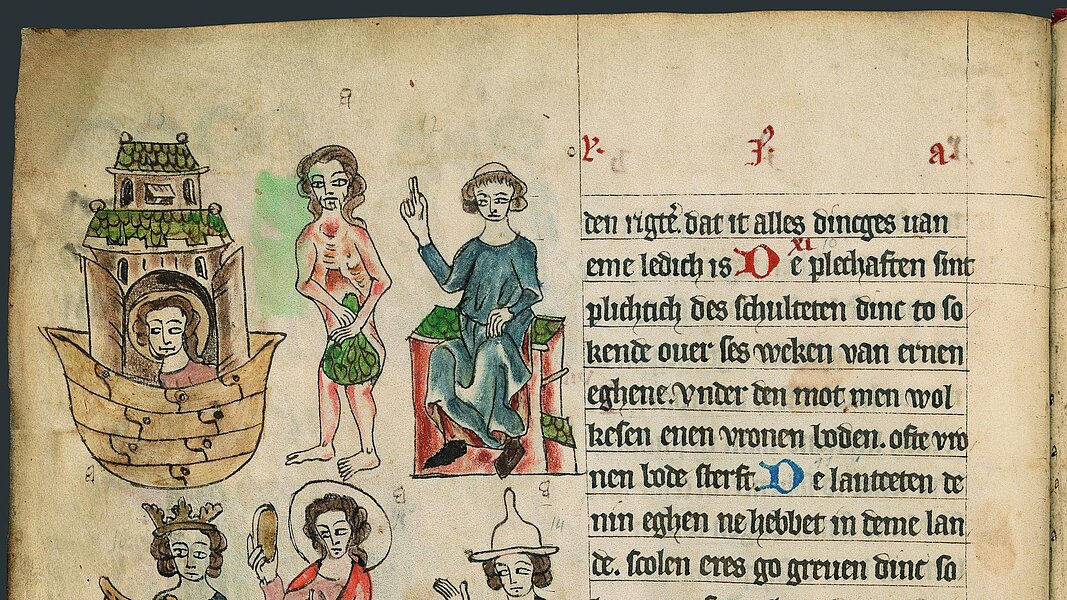 den rigte. dat it alles dincges uan
eme ledich is D XI e plechaften sint
plichtich des schulteten dinc to so
kende ouer ses weken van ernen
eghene. vnder den mot men wol
kesen enen vronen boden. ofte vro
nen bode sterft. D e lantceten de
nin eghen ne hebbet in deme lan
de. scolen eres go greuen dinc so